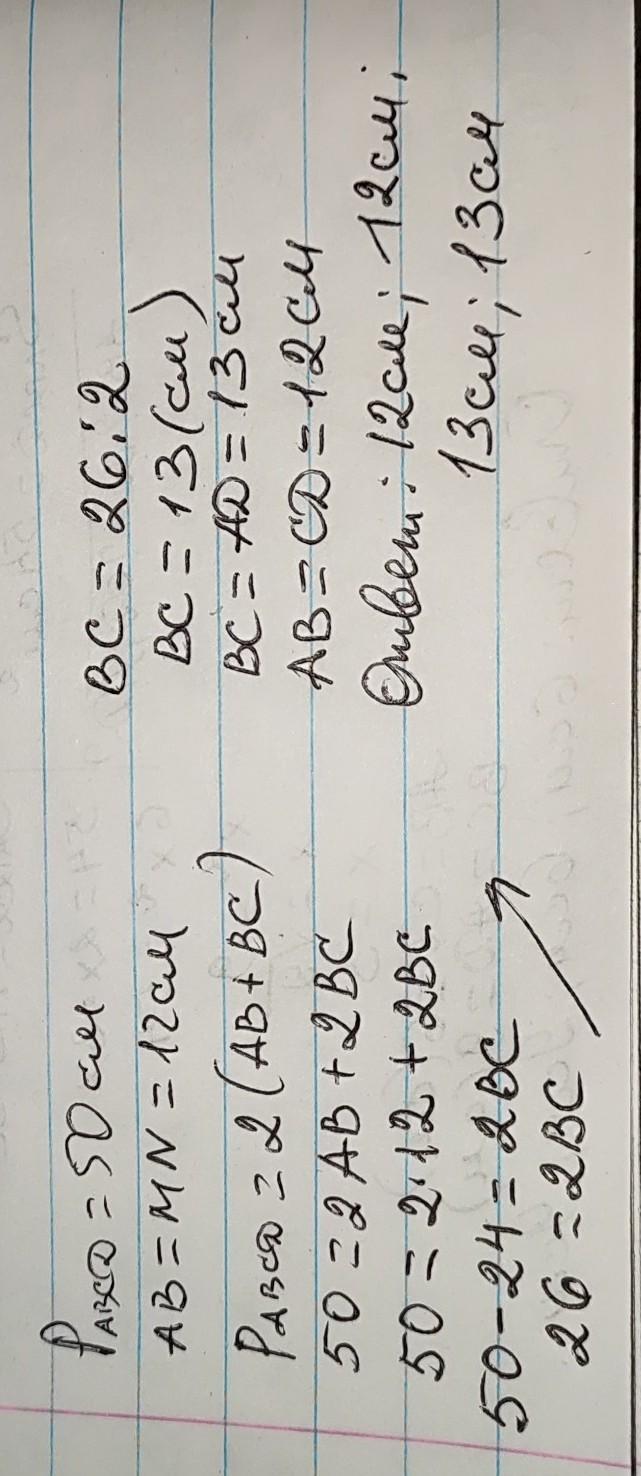 P ABCD = 50 см
AB = MN = 12 см
P ABCD = 2 (AB + BC)
50 = 2 AB + 2BC
50 = 2·12 + 2BC
50 - 24 = 2BC
26 = 2BC
BC = 26:2
BC = 13 (см)
BC = AD = 13 см
AB = CD = 12 см
Ответ: 12см; 12см;
13см; 13см